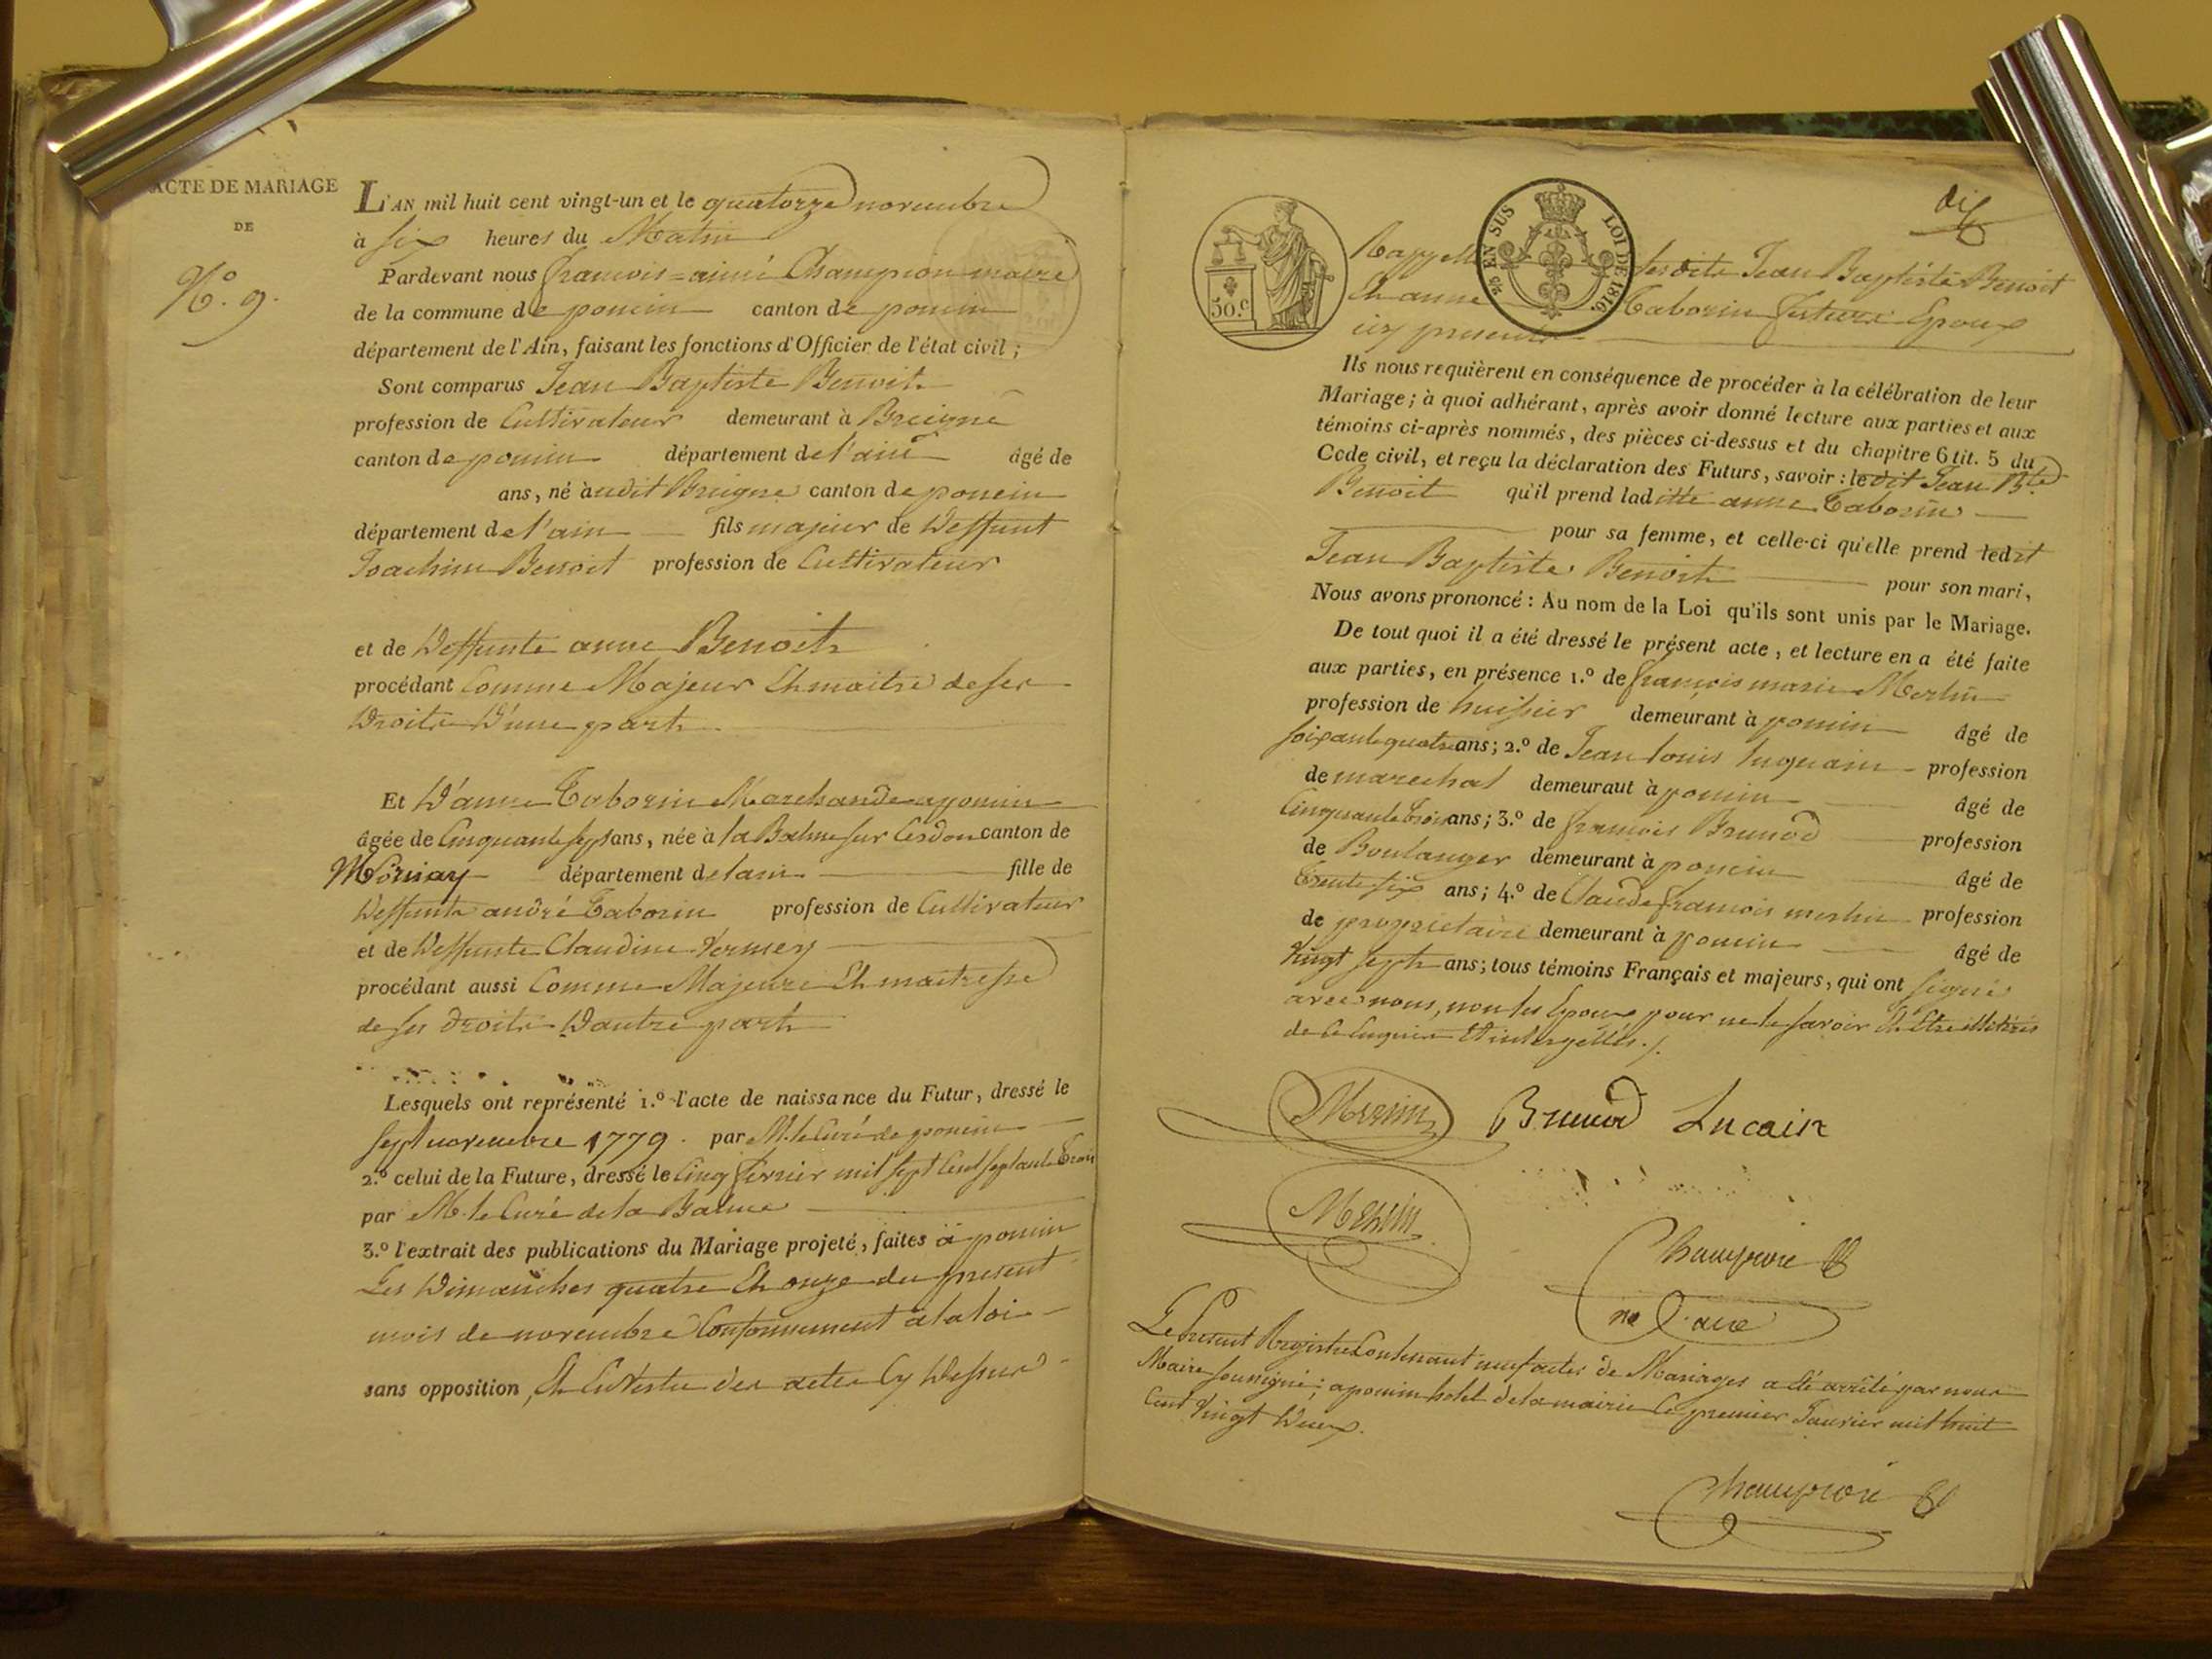 ACTE DE MARIAGE
DE
N.º 9.
L'AN mil huit cent vingt-un et le quatorze novembre
à six heures du Matin
Pardevant nous francois=aimé Champion maire
de la commune de poncin canton de poncin
département de l'Ain, faisant les fonctions d'Officier de l'état civil;
Sont comparus Jean Baptiste Benoit
profession de Cultivateur demeurant à Breigne
canton de poncin département de l'ain âgé de
ans, né audit Breigne canton de poncin
département de l'ain fils majeur de Deffunt
Joachim Benoit profession de Cultivateur
et de Deffunte anne Benoit
procédant Comme Majeur Et maitre de ses
Droits D'une part
Et D'anne Taborin Marchande a poncin
âgée de Cinquante sept ans, née à la Balme sur Cerdon canton de
département de lain fille de
Deffunt andré Taborin profession de Cultivateur
et de Deffunte Claudine
procédant aussi Comme Majeure Et maitresse
de ses droits Dautre part
Lesquels ont représenté 1.º l'acte de naissance du Futur, dressé le
sept novembre 1779. par M. le Curé de poncin
2.º celui de la Future, dressé le Cinq fevrier mil sept Cent septante Trois
par M. le Curé de la Balme
3.º l'extrait des publications du Mariage projeté, faites à poncin
Les Dimanches quatre Et onze du present
mois de novembre Conformement a la loi
sans opposition, Et En Vertu des actes Cy Dessus
dix
50.c
EN SUS LOI DE 1816
Rappellé lesdits Jean Baptiste Benoit
Et anne Taborin futurs Epoux
icy presents
Ils nous requièrent en conséquence de procéder à la célébration de leur
Mariage; à quoi adhérant, après avoir donné lecture aux parties et aux
témoins ci-après nommés, des pièces ci-dessus et du chapitre 6 tit. 5 du
Code civil, et reçu la déclaration des Futurs, savoir: ledit Jean B.te
Benoit qu'il prend laditte anne Taborin
pour sa femme, et celle-ci qu'elle prend ledit
Jean Baptiste Benoit pour son mari,
Nous avons prononcé: Au nom de la Loi qu'ils sont unis par le Mariage.
De tout quoi il a été dressé le présent acte, et lecture en a été faite
aux parties, en présence 1.º de francois marie Merlin
profession de huissier demeurant à poncin âgé de
soixante quatre ans; 2.º de Jean louis luquain profession
de marechal demeuraut à poncin âgé de
Cinquante trois ans; 3.º de francois Brunod profession
de Boulanger demeurant à poncin âgé de
Trente six ans; 4.º de Claude francois merlin profession
de proprietaire demeurant à poncin âgé de
Vingt sept ans; tous témoins Français et majeurs, qui ont signé
avec nous, non les Epoux pour ne le savoir Et Etre illitirés
de Ce Enquis Et interpellés./.
Merlin Brunod Lucain
Merlin
Champion
maire
Le present Registre Contenant neuf actes de Mariages a été arrêté par nous
Maire soussigné; a poncin hotel de la mairie le premier Janvier mil huit
Cent Vingt Deux.
Champion